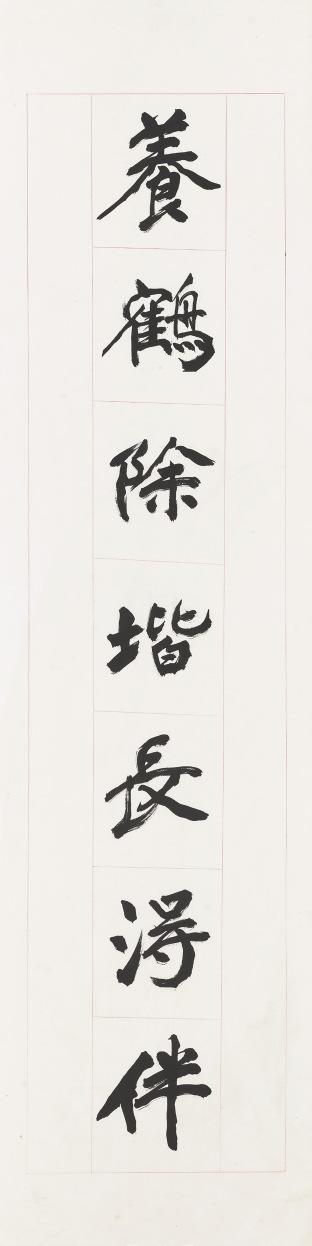 養鶴除堦長淂伴